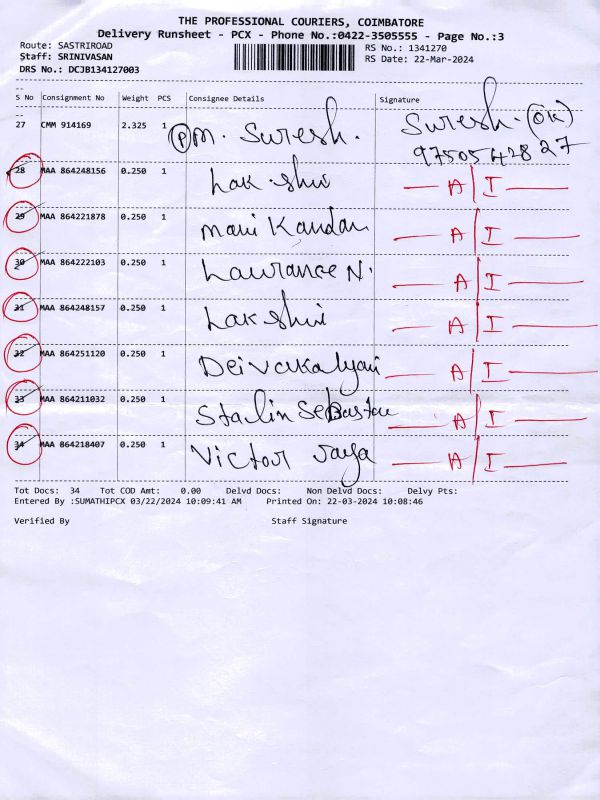 THE PROFESSIONAL COURIERS, COIMBATORE
Delivery Runsheet - PCX - Phone No.:0422-3505555 - Page No.:3
Route: SASTRIROAD
RS No.: 1341270
Staff: SRINIVASAN
RS Date: 22-Mar-2024
DRS No.: DCJB134127003
--
S No Consignment No Weight PCS Consignee Details Signature
--
27 CMM 914169 2.325 1 (P) M. Suresh. Suresh. (OK)
9750542827
28 MAA 864248156 0.250 1 Lak shir A/I
29 MAA 864221878 0.250 1 Mani Kandan A/I
30 MAA 864222103 0.250 1 Lawrance N. A/I
31 MAA 864248157 0.250 1 Lak shir A/I
32 MAA 864251120 0.250 1 Deivakalyani A/I
33 MAA 864211032 0.250 1 Starlin Sebastan A/I
34 MAA 864218407 0.250 1 Victor A/I
Tot Docs: 34 Tot COD Amt: 0.00 Delvd Docs: Non Delvd Docs: Delvy Pts:
Entered By :SUMATHIPCX 03/22/2024 10:09:41 AM Printed On: 22-03-2024 10:08:46
Verified By Staff Signature